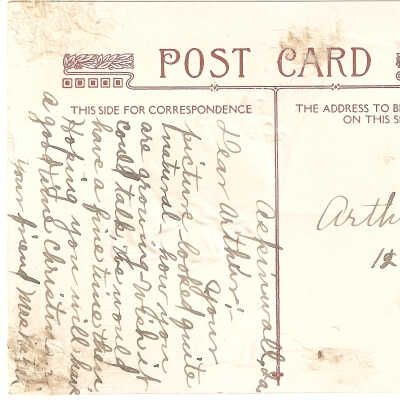 POST CARD
THIS SIDE FOR CORRESPONDENCE
THE ADDRESS TO B
ON THIS S
Aspinwall, Pa.
Dear Arthur:
Your
picture looked quite
natural - how you
are growing. Will it
could talk, we would
have a fine time
Hoping you will have
a good time Christmas
your friend Mrs.
Arth
12